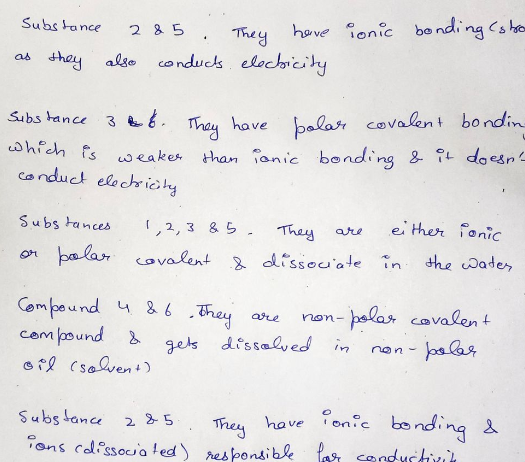 Substance 2 & 5. They have ionic bonding (stro
as they also conducts electricity
Substance 3 & 6. They have polar covalent bondin
which is weaker than ionic bonding & it doesn't
conduct electricity
Substances 1, 2, 3 & 5. They are either ionic
or polar covalent & dissociate in the water
Compound 4 & 6. They are non-polar covalent
compound & gets dissolved in non-polar
oil (solvent)
Substance 2 & 5. They have ionic bonding &
ions (dissociated) responsible for conductivit